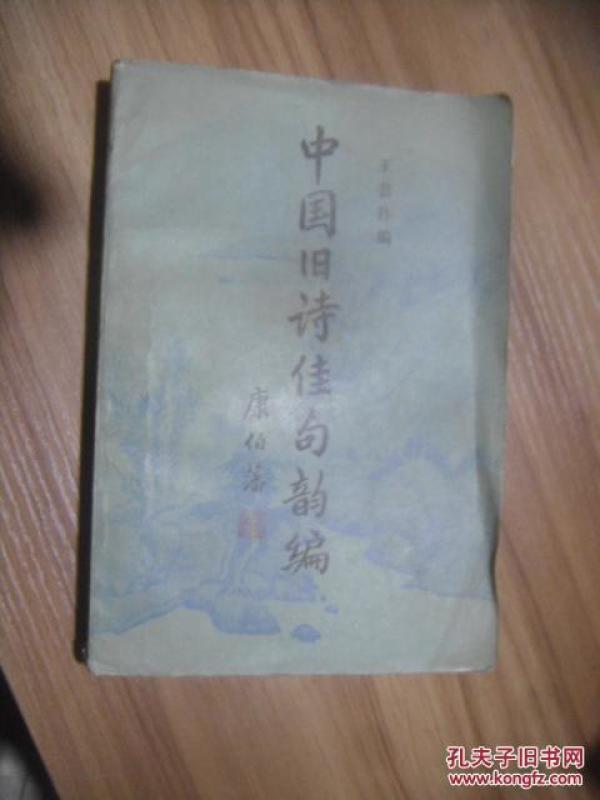 中国旧诗佳句韵编
康伯藩
孔夫子旧书网
www.kongfz.com